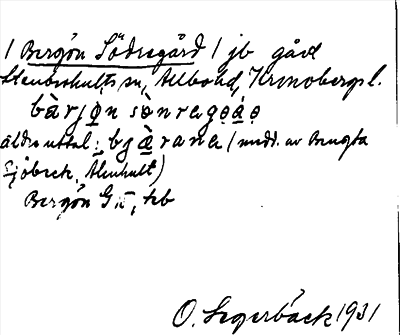 / Bergön Södregård / jb gård
Stenbrohults sn, Allbo hd, Kronobergs l.
bàrjo̤n sònragọạọ
äldre uttal: bjàrana (medd. av Bengta
Sjöbeck, Älmhult)
Bergön G
O. Segerbäck 1931